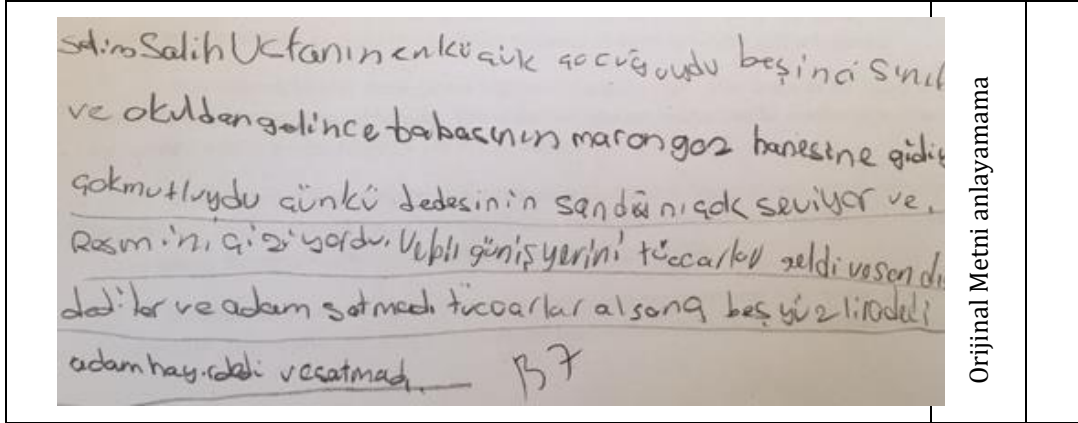 Selim Salih Ustanın en küçük çocuğuydu beşinci Sınıf
ve okuldan gelince babasının marongoz hanesine gidiy
çokmutluydu çünkü dedesinin sandıını çok seviyor ve.
Resmini çiziyordu. Vebir günişyerini tüccarlar geldi vesandı
dediler ve adam satmadı tüccarlar alsana beş yüz liradedi
adam hayır dedi vesatmadı
B7
Orijinal Metni anlayamama